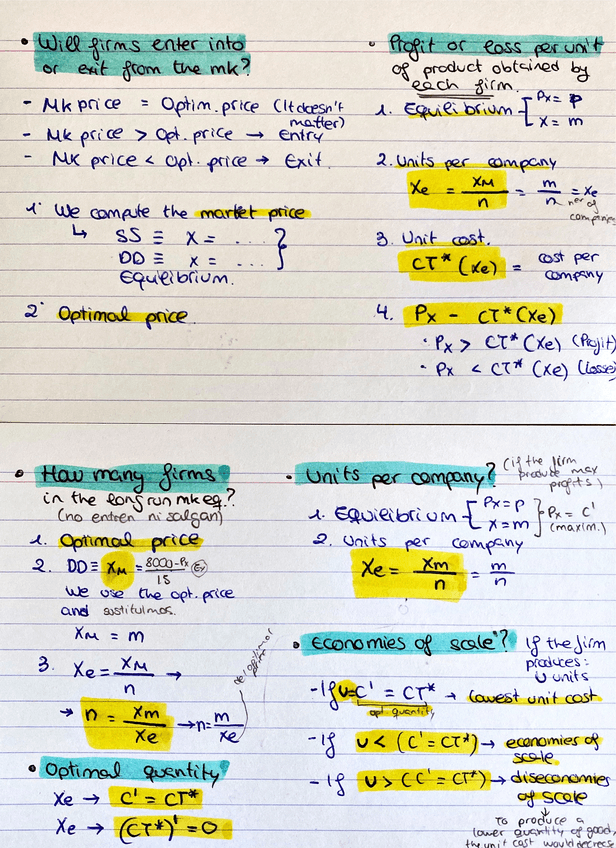 • Will firms enter into
or exit from the mk?
- Mk price = Optim. price (It doesn't
matter)
- Mk price > Opt. price → Entry
- Mk price < Opt. price → Exit.
1· We compute the market price
↳ SS ≡ X = ....
DD ≡ X = ....
Equilibrium.
2· Optimal price.
• Profit or loss per unit
of product obtained by
each firm.
1. Equilibrium [ Px = P
X = m
2. Units per company
Xe = XM/n = m/n = Xe
ner of
companies
3. Unit cost.
CT* (Xe) = cost per
company
4. Px - CT* (Xe)
• Px > CT* (Xe) (Profit)
• Px < CT* (Xe) (Losse)
• How many firms
in the long run mk eq.?
(no entren ni salgan)
1. Optimal price
2. DD ≡ XM = 8000-Px/15 (Ex)
We use the opt. price
and sustituimos.
XM = m
3. Xe = XM/n →
→ n = Xm/Xe → n = m/Xe
• Optimal quantity
Xe → C' = CT*
Xe → (CT*)' = 0
• Units per company? (if the firm
produce max
profits)
1. Equilibrium [ Px = p
X = m } Px = C'
(maxim.)
2. Units per company
Xe = Xm/n = m/n
• Economies of scale? If the firm
produces:
U units
- If U = C' = CT* → lowest unit cost
opt quantity
- If U < (C' = CT*) → economies of
scale
- If U > (C' = CT*) → diseconomies
of scale
↓
To produce a
lower quantity of good,
the unit cost would decreas